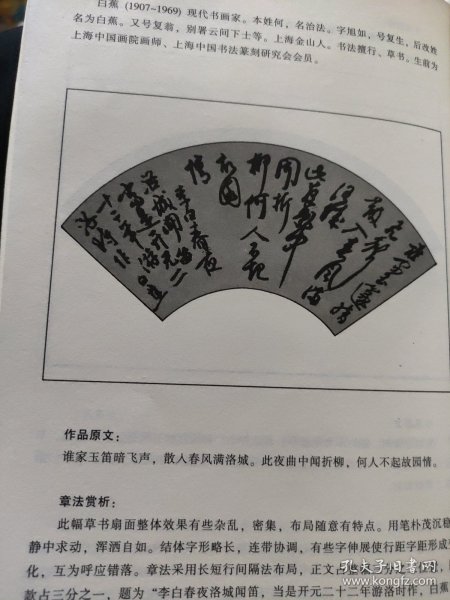 白蕉 (1907~1969) 现代书画家。本姓何，名治法。字旭如，号复生，后改姓
名为白蕉。又号复翁，别署云间下士等。上海金山人。书法擅行、草书。生前为
上海中国画院画师、上海中国书法篆刻研究会会员。
谁家玉笛暗
飞声
散入春风满
洛城
此夜曲中
闻折
柳何人不起
故园
情
李白春夜
洛城闻笛
作品原文：
谁家玉笛暗飞声，散人春风满洛城。此夜曲中闻折柳，何人不起故园情。
章法赏析：
此幅草书扇面整体效果有些杂乱，密集，布局随意有特点。用笔朴茂沉稳
静中求动，浑洒自如。结体字形略长，连带协调，有些字伸展使行距字距形成
化，互为呼应错落。章法采用长短行间隔法布局，正文占
款占三分之一，题为“李白春夜洛城闻笛，当是开元二十二年游洛时作，白蕉
孔夫子旧书网